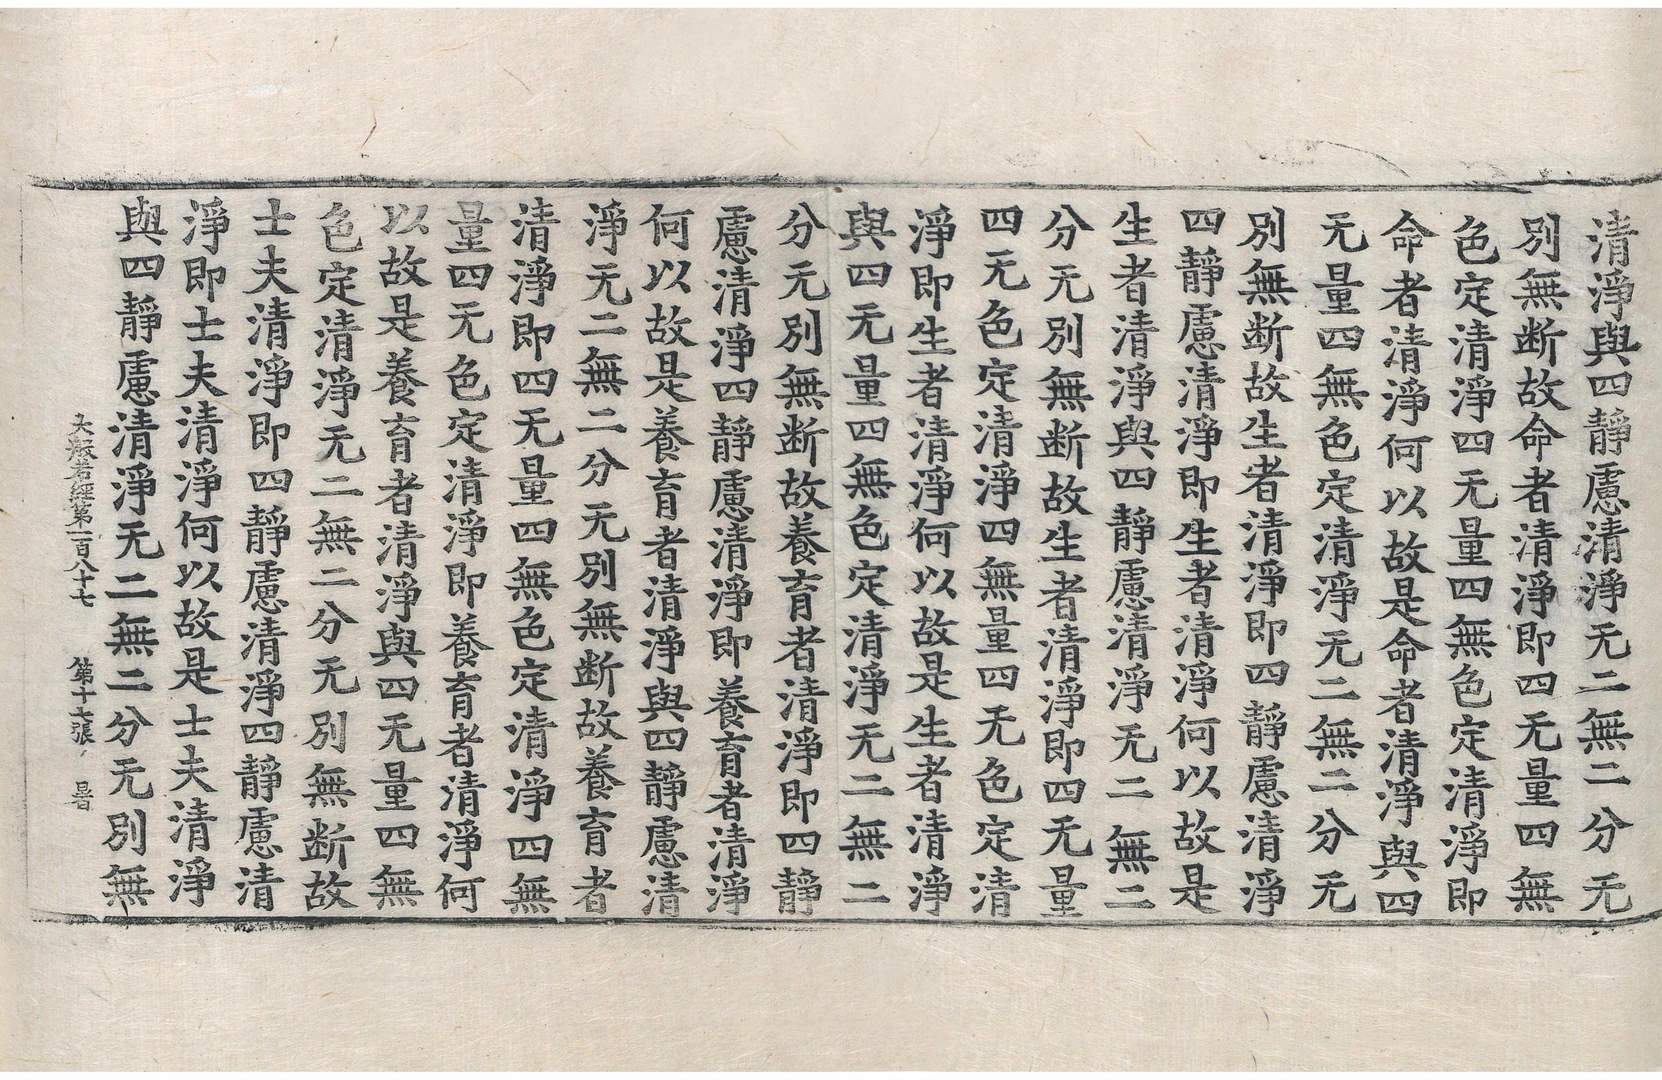 清淨與四靜慮清淨无二無二分无
別無断故命者清淨即四无量四無
色定清淨四无量四無色定清淨即
命者清淨何以故是命者清淨與四
无量四無色定清淨无二無二分无
別無断故生者清淨即四靜慮清淨
四靜慮清淨即生者清淨何以故是
生者清淨與四靜慮清淨无二無二
分无別無断故生者清淨即四无量
四无色定清淨四無量四无色定清
淨即生者清淨何以故是生者清淨
與四无量四無色定清淨无二無二
分无別無断故養育者清淨即四靜
慮清淨四靜慮清淨即養育者清淨
何以故是養育者清淨與四靜慮清
淨无二無二分无別無断故養育者
清淨即四无量四無色定清淨四無
量四无色定清淨即養育者清淨何
以故是養育者清淨與四无量四無
色定清淨无二無二分无別無断故
士夫清淨即四靜慮清淨四靜慮清
淨即士夫清淨何以故是士夫清淨
與四靜慮清淨无二無二分无別無
大般若經第一百八十七 第十七張 暑